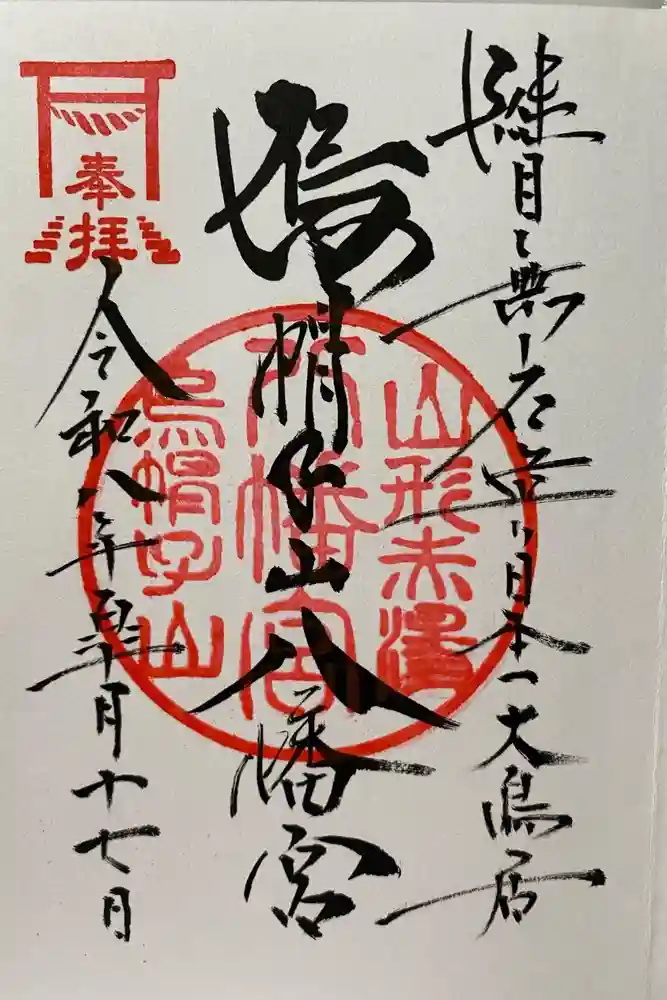 継目無し石造り日本一大鳥居
奉拝
烏帽子山八幡宮
山形赤湯
八幡宮
烏帽子山
令和八年 月十七日